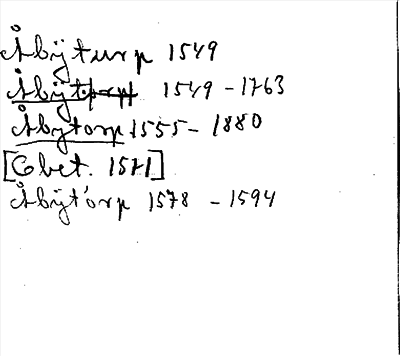 Åbijturp 1549
Åbijtorp 1549-1763
Åbytorp 1555-1880
[Obet. 1571]
Åbijtorp 1578-1594